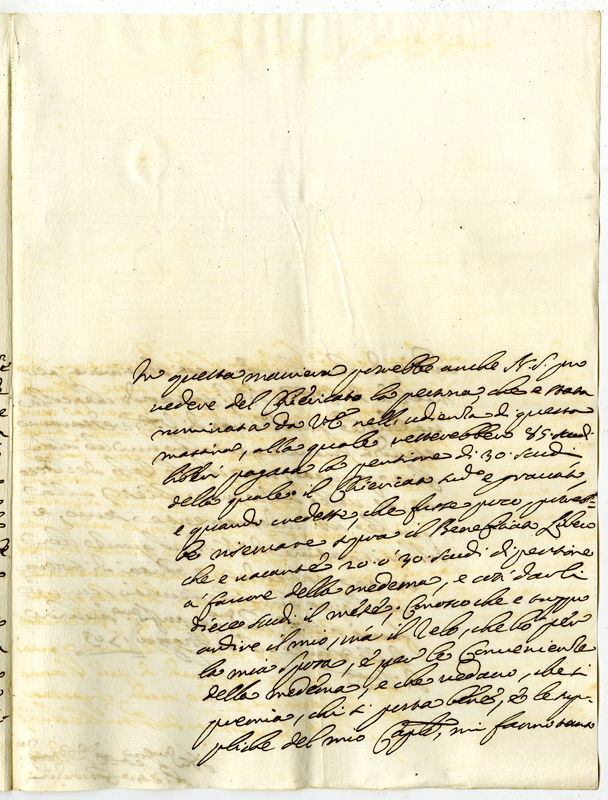 In questa maniera potrebbe anche N. S. pro
vedere del Chiericato la persona, che è stata
nominata da V.E. nell'udienza di questa
mattina, alla quale resterebbero 85 scudi
liberi pagata la pensione di 30 scudi
della quale il Chiericato sud.o è gravato,
e quando credesse, che fusse poco, potreb=
be riservare sopra il Beneficio Libero
che è vacante 20. o 30. scudi di pensione
à favore della medema, e così darli
diece scudi il mese, Conosco che è troppo
ardire il mio, ma il zelo, che ho per
la mia Chiesa, è per le convenienze
della medema, e che vedano, che si
premia, chi si porta bene, è le sup=
pliche del mio Cap.lo, mi fanno tanto